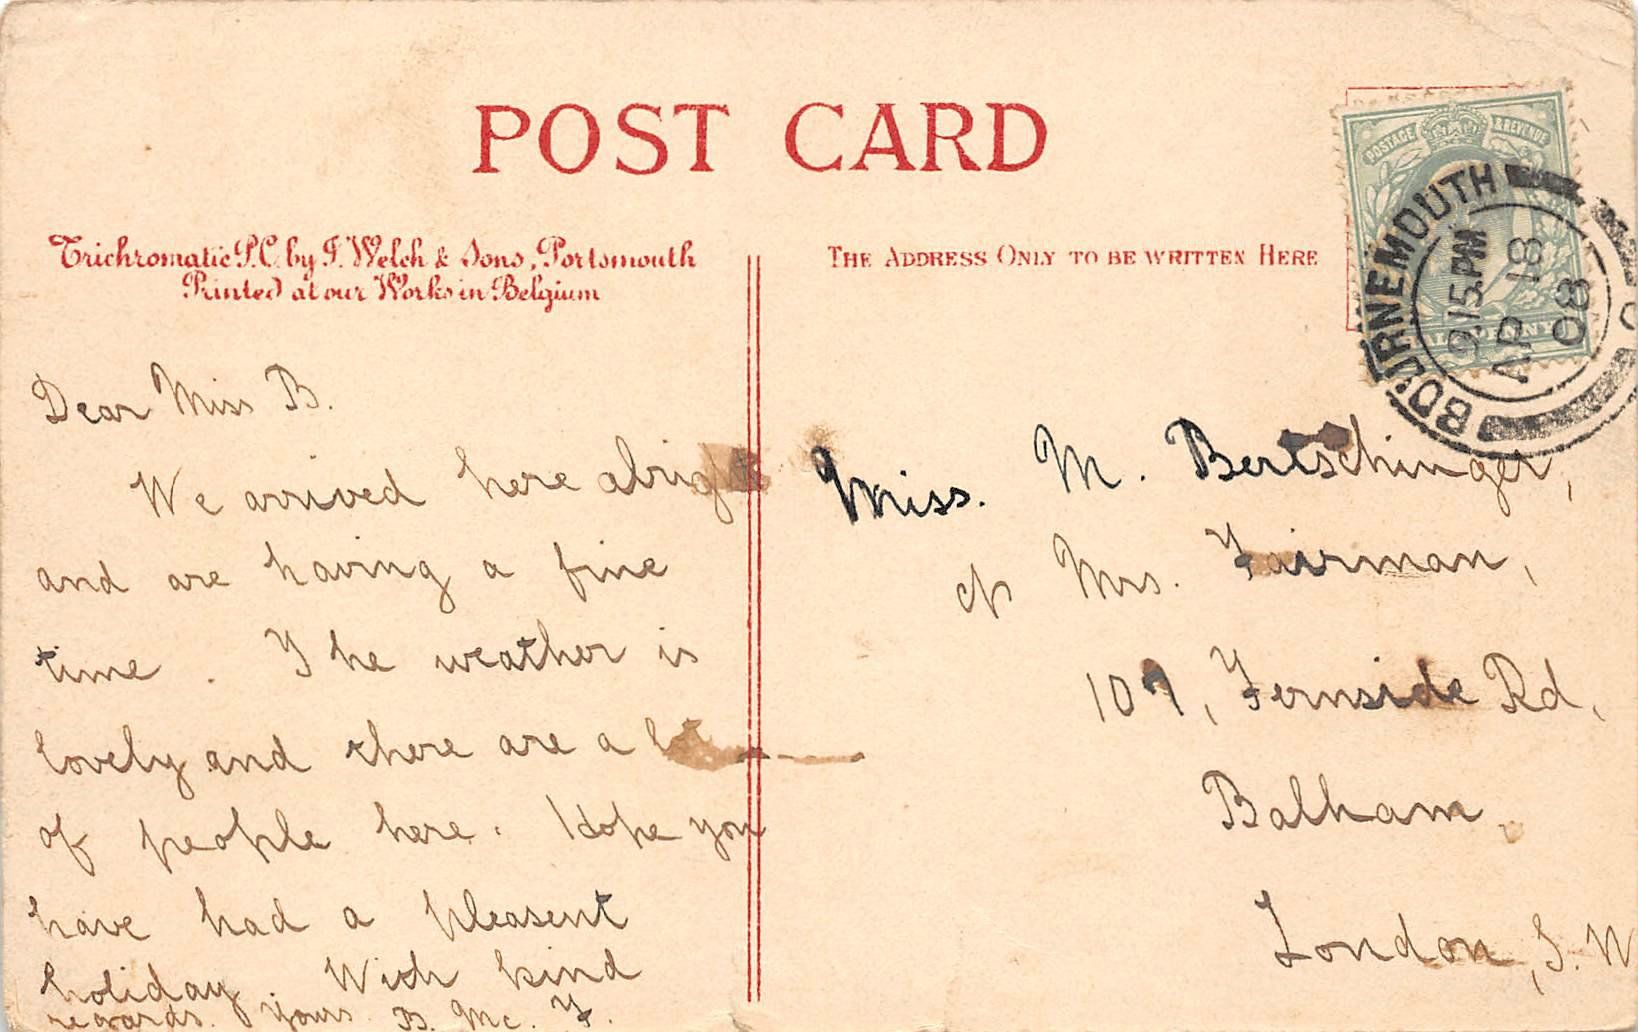 POST CARD
Trichromatic P.C. by F. Welch & Sons, Portsmouth
Printed at our Works in Belgium
THE ADDRESS ONLY TO BE WRITTEN HERE
POSTAGE & REVENUE
HALFPENNY
BOURNEMOUTH
9.15 PM
AP 18
08
Dear Miss B.
We arrived here alright
and are having a fine
time. The weather is
lovely and there are a lot
of people here. Hope you
have had a pleasent
holiday. With kind
regards. Yours B. Mc. F.
Miss. M. Bertschinger,
c/o Mrs. Fairman,
107, Fernside Rd,
Balham,
London, S.W